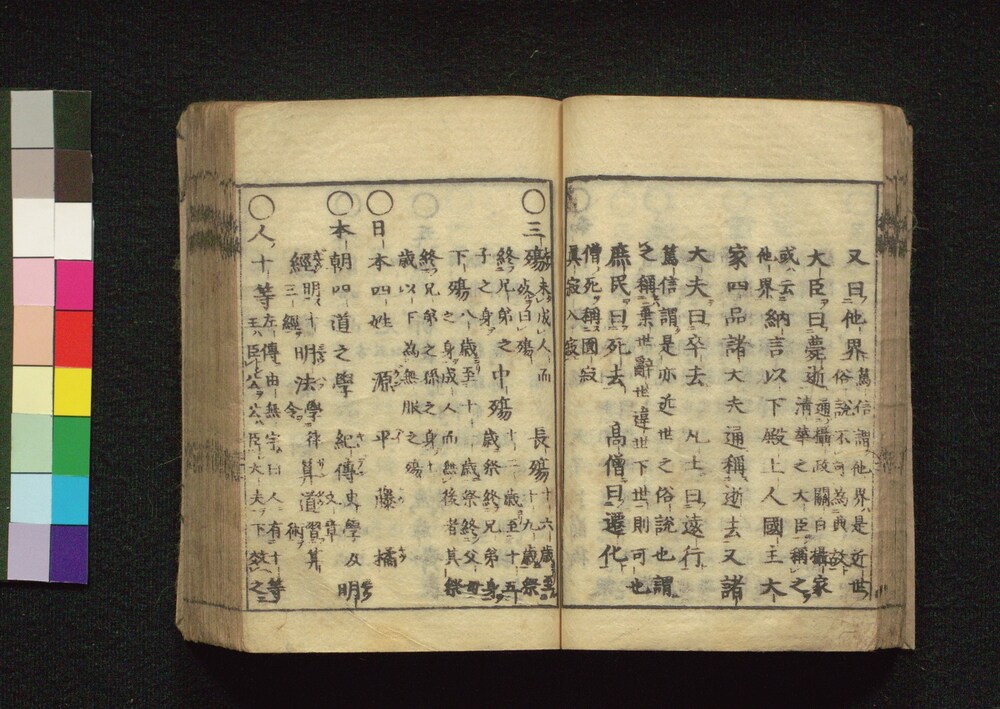 又曰他界 篤信謂他界是近世
俗説不可為典故
大臣曰薨逝 通攝政關白攝家
清華之大臣稱之
或云他界 納言以下殿上人國主大
家四品諸大夫通稱逝去又諸
大夫曰卒去 凡士曰遠行
篤信謂是亦近世之俗説也謂
之稱棄世辭世違世下世則可也
庶民曰死去 高僧曰遷化
僧死稱圓寂
真寂入寂
○三殤 未成人而
死曰殤 長殤 十六歳至
十九歳祭
終兄弟之
子之身 中殤 十二歳至十五
歳祭終兄弟身
下殤 八歳至十一歳祭終父母
之身成人而無後者其祭
終兄弟之孫之身
歳以下為無服之殤
○日本四姓 源 平 藤 橘
○本朝四道之學 紀傳 史學及
文章 明
經 明十
三經 明法 學律
令 算道 習算
術
○人十等 左傳由無宇曰人有十等
王臣公公臣大夫下效之